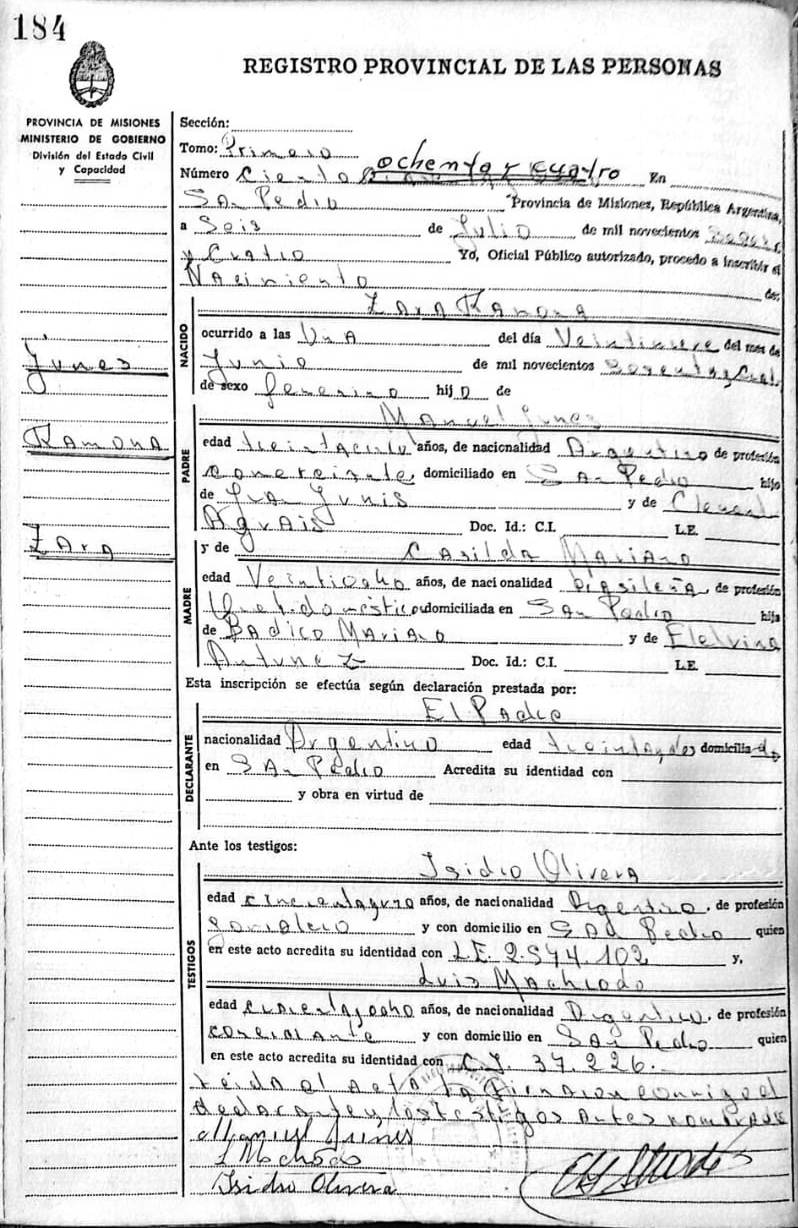 184
REGISTRO PROVINCIAL DE LAS PERSONAS
PROVINCIA DE MISIONES
MINISTERIO DE GOBIERNO
División del Estado Civil
y Capacidad
Sección:
Tomo: Primero
ochenta y cuatro
Número Ciento En
San Pedro Provincia de Misiones, República Argentina,
a Seis de Julio de mil novecientos
y Cuatro Yo, Oficial Público autorizado, procedo a inscribir el
Nacimiento de:
Junes
Ramona
Zara
NACIDO
Zara Ramona
ocurrido a las Una del día del mes de
Junio de mil novecientos
de sexo femenino hij a de
PADRE
Manuel Junes
edad años, de nacionalidad Argentino de profesión
Comerciante, domiciliado en San Pedro hijo
de Junis y de
Doc. Id.: C.I. L.E.
MADRE
y de Casilda Mariano
edad Veintiocho años, de nacionalidad brasileña, de profesión
domiciliada en San Pedro hija
de Badico Mariano y de Elelvina
Antunez Doc. Id.: C.I. L.E.
Esta inscripción se efectúa según declaración prestada por:
DECLARANTE
El Padre
nacionalidad Argentino edad domiciliado
en San Pedro Acredita su identidad con
y obra en virtud de
Ante los testigos:
TESTIGOS
Isidro Olivera
edad años, de nacionalidad Argentino, de profesión
y con domicilio en San Pedro quien
en este acto acredita su identidad con L.E. 2.544.102 y,
Luis Machiodo
edad años, de nacionalidad Argentino, de profesión
comerciante y con domicilio en San Pedro quien
en este acto acredita su identidad con C.I. 37.226.-
Leida el acta la firmaron conmigo el
declarante y los testigos antes nombrados
Manuel Junes
L Machodo
Isidro Olivera